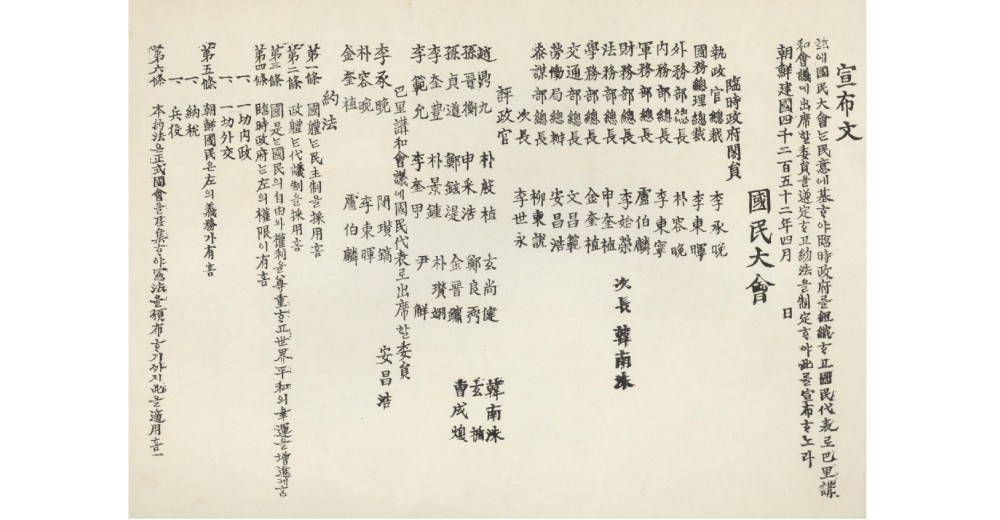 宣布文
玆에國民大會는民意에基ᄒᆞ야臨時政府를組織ᄒᆞ고國民代表로巴里講
和會議에出席할委員을選定ᄒᆞ고約法을制定ᄒᆞ야此를宣布ᄒᆞ노라
朝鮮建國四千二百五十二年四月 日
國民大會
臨時政府閣員
執政官總裁 李承晩
國務總理總裁 李東暉
外務部總長 朴容晩
內務部總長 李東寧
軍務部總長 盧伯麟
財務部總長 李始榮 次長 韓南洙
法務部總長 申奎植
學務部總長 金奎植
交通部總長 文昌範
勞働局總辦 安昌浩
叅謀部總長 柳東說
次長 李世永
評政官
趙鼎九 朴殷植 玄尙健 韓南洙
孫晉衡 申采浩 鄭良弼 玄楯
孫貞道 鄭鉉湜 金晉鏞 曹成煥
李奎豊 朴景鍾 朴瓚翊
李範允 李奎甲 尹解
巴里講和會議에國民代表로出席할委員
李承晩 閔瓚鎬 安昌浩
朴容晩 李東暉
金奎植 盧伯麟
約法
第一條 國體는民主制을採用흠
第二條 政體는代議制을採用흠
第三條 國是는國民의自由와權利을尊重ᄒᆞ고世界平和의幸運을增進게흠
第四條 臨時政府는左의權限이有흠
一、一切內政
一、一切外交
第五條 朝鮮國民은左의義務가有흠
一、納稅
一、兵役
第六條 本約法은正式國會을召集ᄒᆞ야憲法을頒布ᄒᆞ기까지此을適用흠